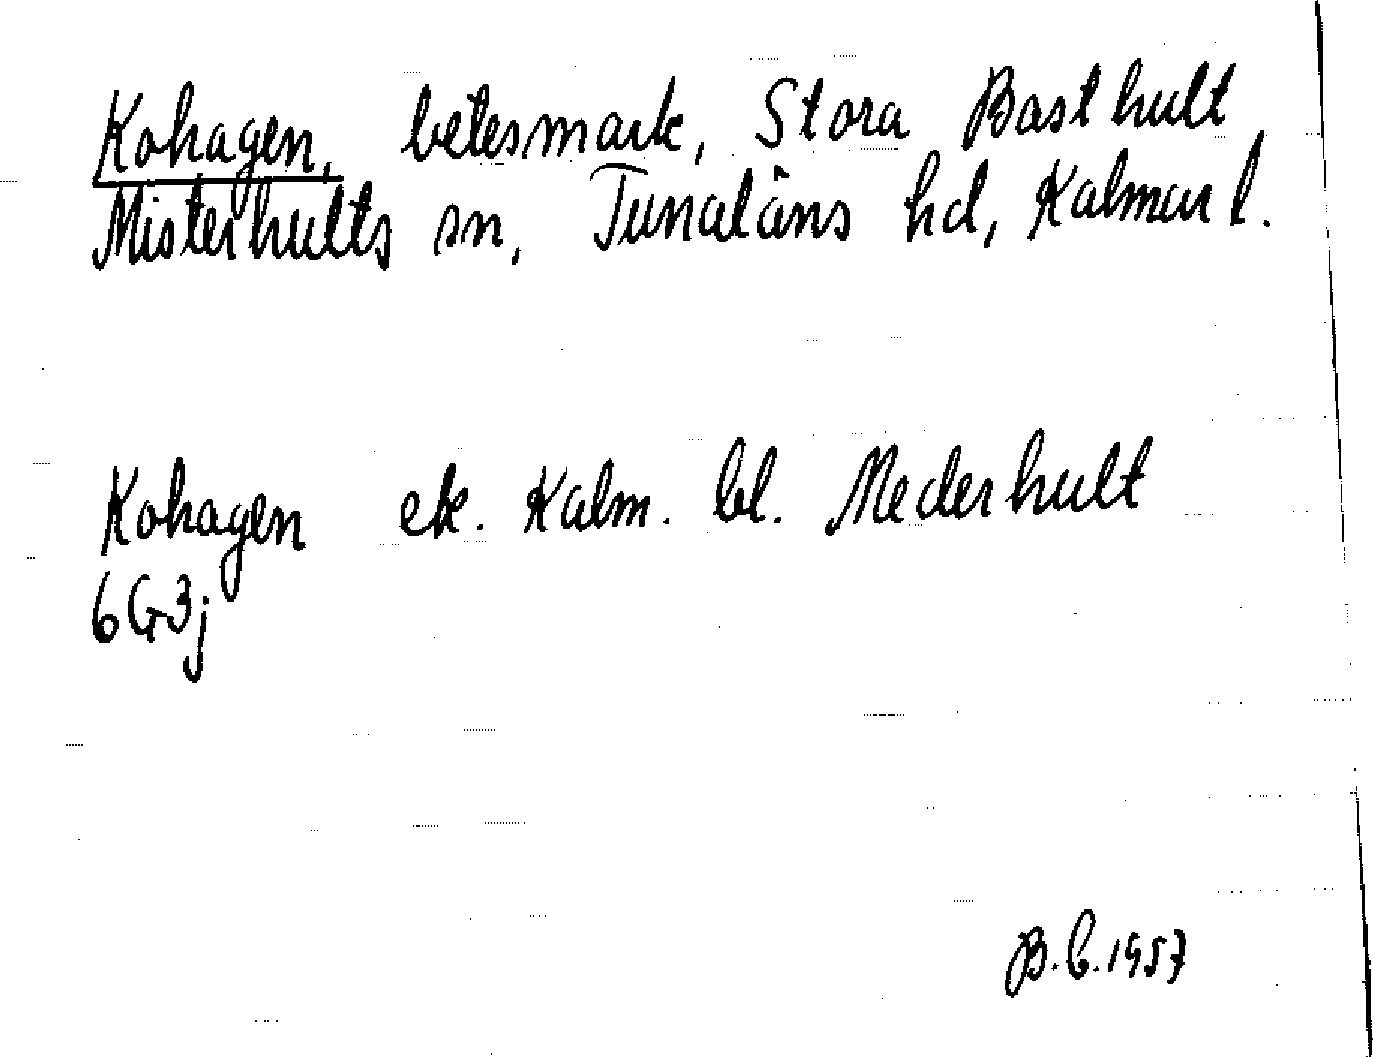 Kohagen, betesmark, Stora Basthult
Misterhults sn, Tunaläns hd, Kalmar l.
Kohagen ek. Kalm. bl. Mederhult
6G3j
B.C.1957